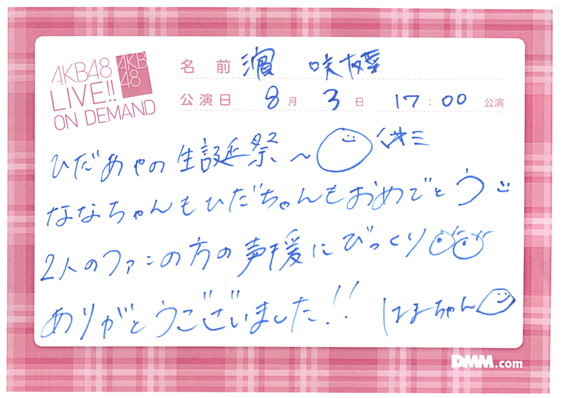 AKB48
LIVE!!
ON DEMAND
AKB
48
名前 濵 咲友菜
公演日 8月 3日 17:00 公演
ひだあやの生誕祭〜
ななちゃんもひだちゃんもおめでとう
2人のファンの方の声援にびっくり
ありがとうございました!! はまちゃん
DMM.com